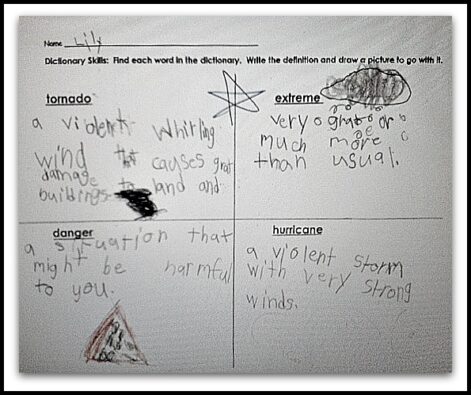 Name Lily
Dictionary Skills: Find each word in the dictionary. Write the definition and draw a picture to go with it.
tornado
a violent whirling
wind that causes grat
damage to land and
buildings.
extreme
very grat or
much more
than usual.
danger
a situation that
might be harmful
to you.
hurricane
a violent storm
with very strong
winds.